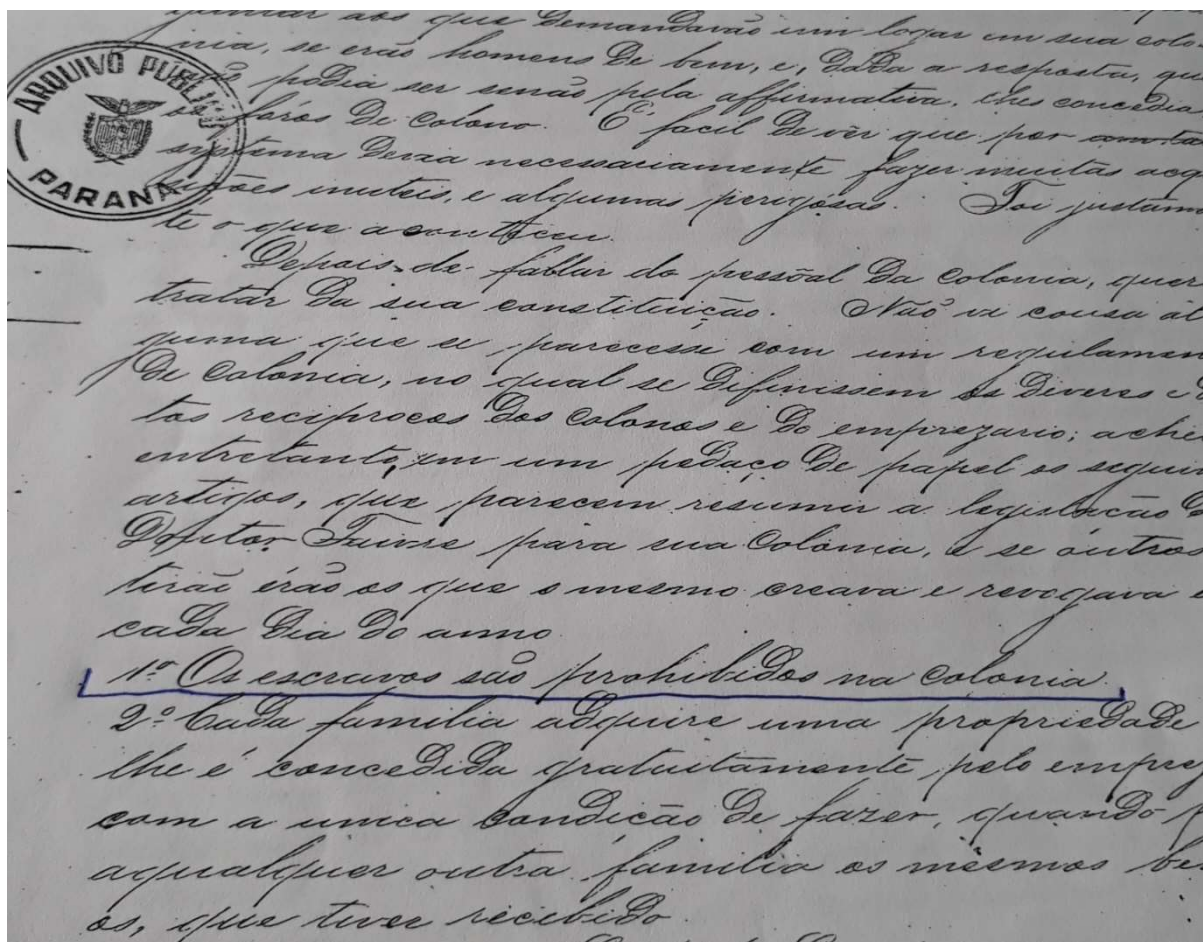 guntar aos que demandavão um logar em sua colo
nia, se erão homens de bem, e, dada a resposta, que
não podia ser senão pela affirmativa, lhes concedia
os fóros de colono. É facil de vêr que por
systema devia necessariamente fazer muitas acqui
sições inuteis, e algumas perigosas. Foi justamen
te o que aconteceu.
Depois de fallar do pessôal da colonia, quer
tratar da sua constituição. Não vi cousa al
guma que se parecesse com um regulamen
de colonia, no qual se difinissem os deveres e
tos reciprocos dos colonos e do emprezario; achei
entretanto, em um pedaço de papel os segui
artigos, que parecem resumir a legislação
Doutor Faivre para sua colonia, e se outros
tirão érão os que o mesmo creava e revogava
cada dia do anno
1º Os escravos são prohibidos na colonia.
2º Cada familia adquire uma propriedade
lhe é concedida gratuitamente pelo emprez
com a unica condição de fazer, quando p
aqualquer outra familia os mesmos be
os, que tiver recebido.
ARQUIVO PÚBLICO
PARANÁ